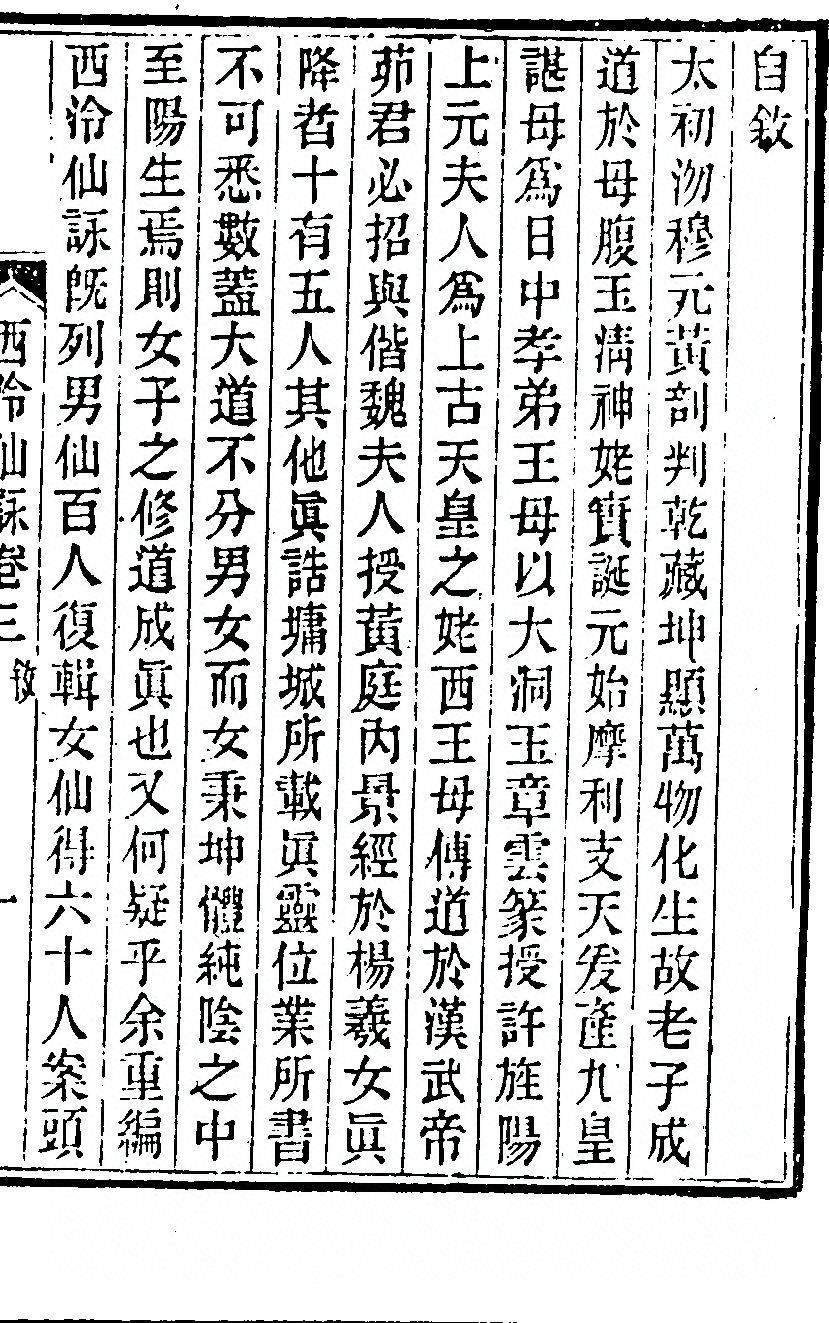 自敘
太初沕穆元黃剖判乾藏坤顯萬物化生故老子成
道於母腹玉淸神姥實誕元始摩利支天爰產九皇
諶母爲日中孝弟王母以大洞玉章雲篆授許旌陽
上元夫人爲上古天皇之姥西王母傳道於漢武帝
茆君必招與偕魏夫人授黃庭內景經於楊羲女眞
降者十有五人其他眞誥墉城所載眞靈位業所書
不可悉數蓋大道不分男女而女秉坤體純陰之中
至陽生焉則女子之修道成眞也又何疑乎余重編
西泠仙詠旣列男仙百人復輯女仙得六十人案頭
西泠仙詠卷三 敘 一